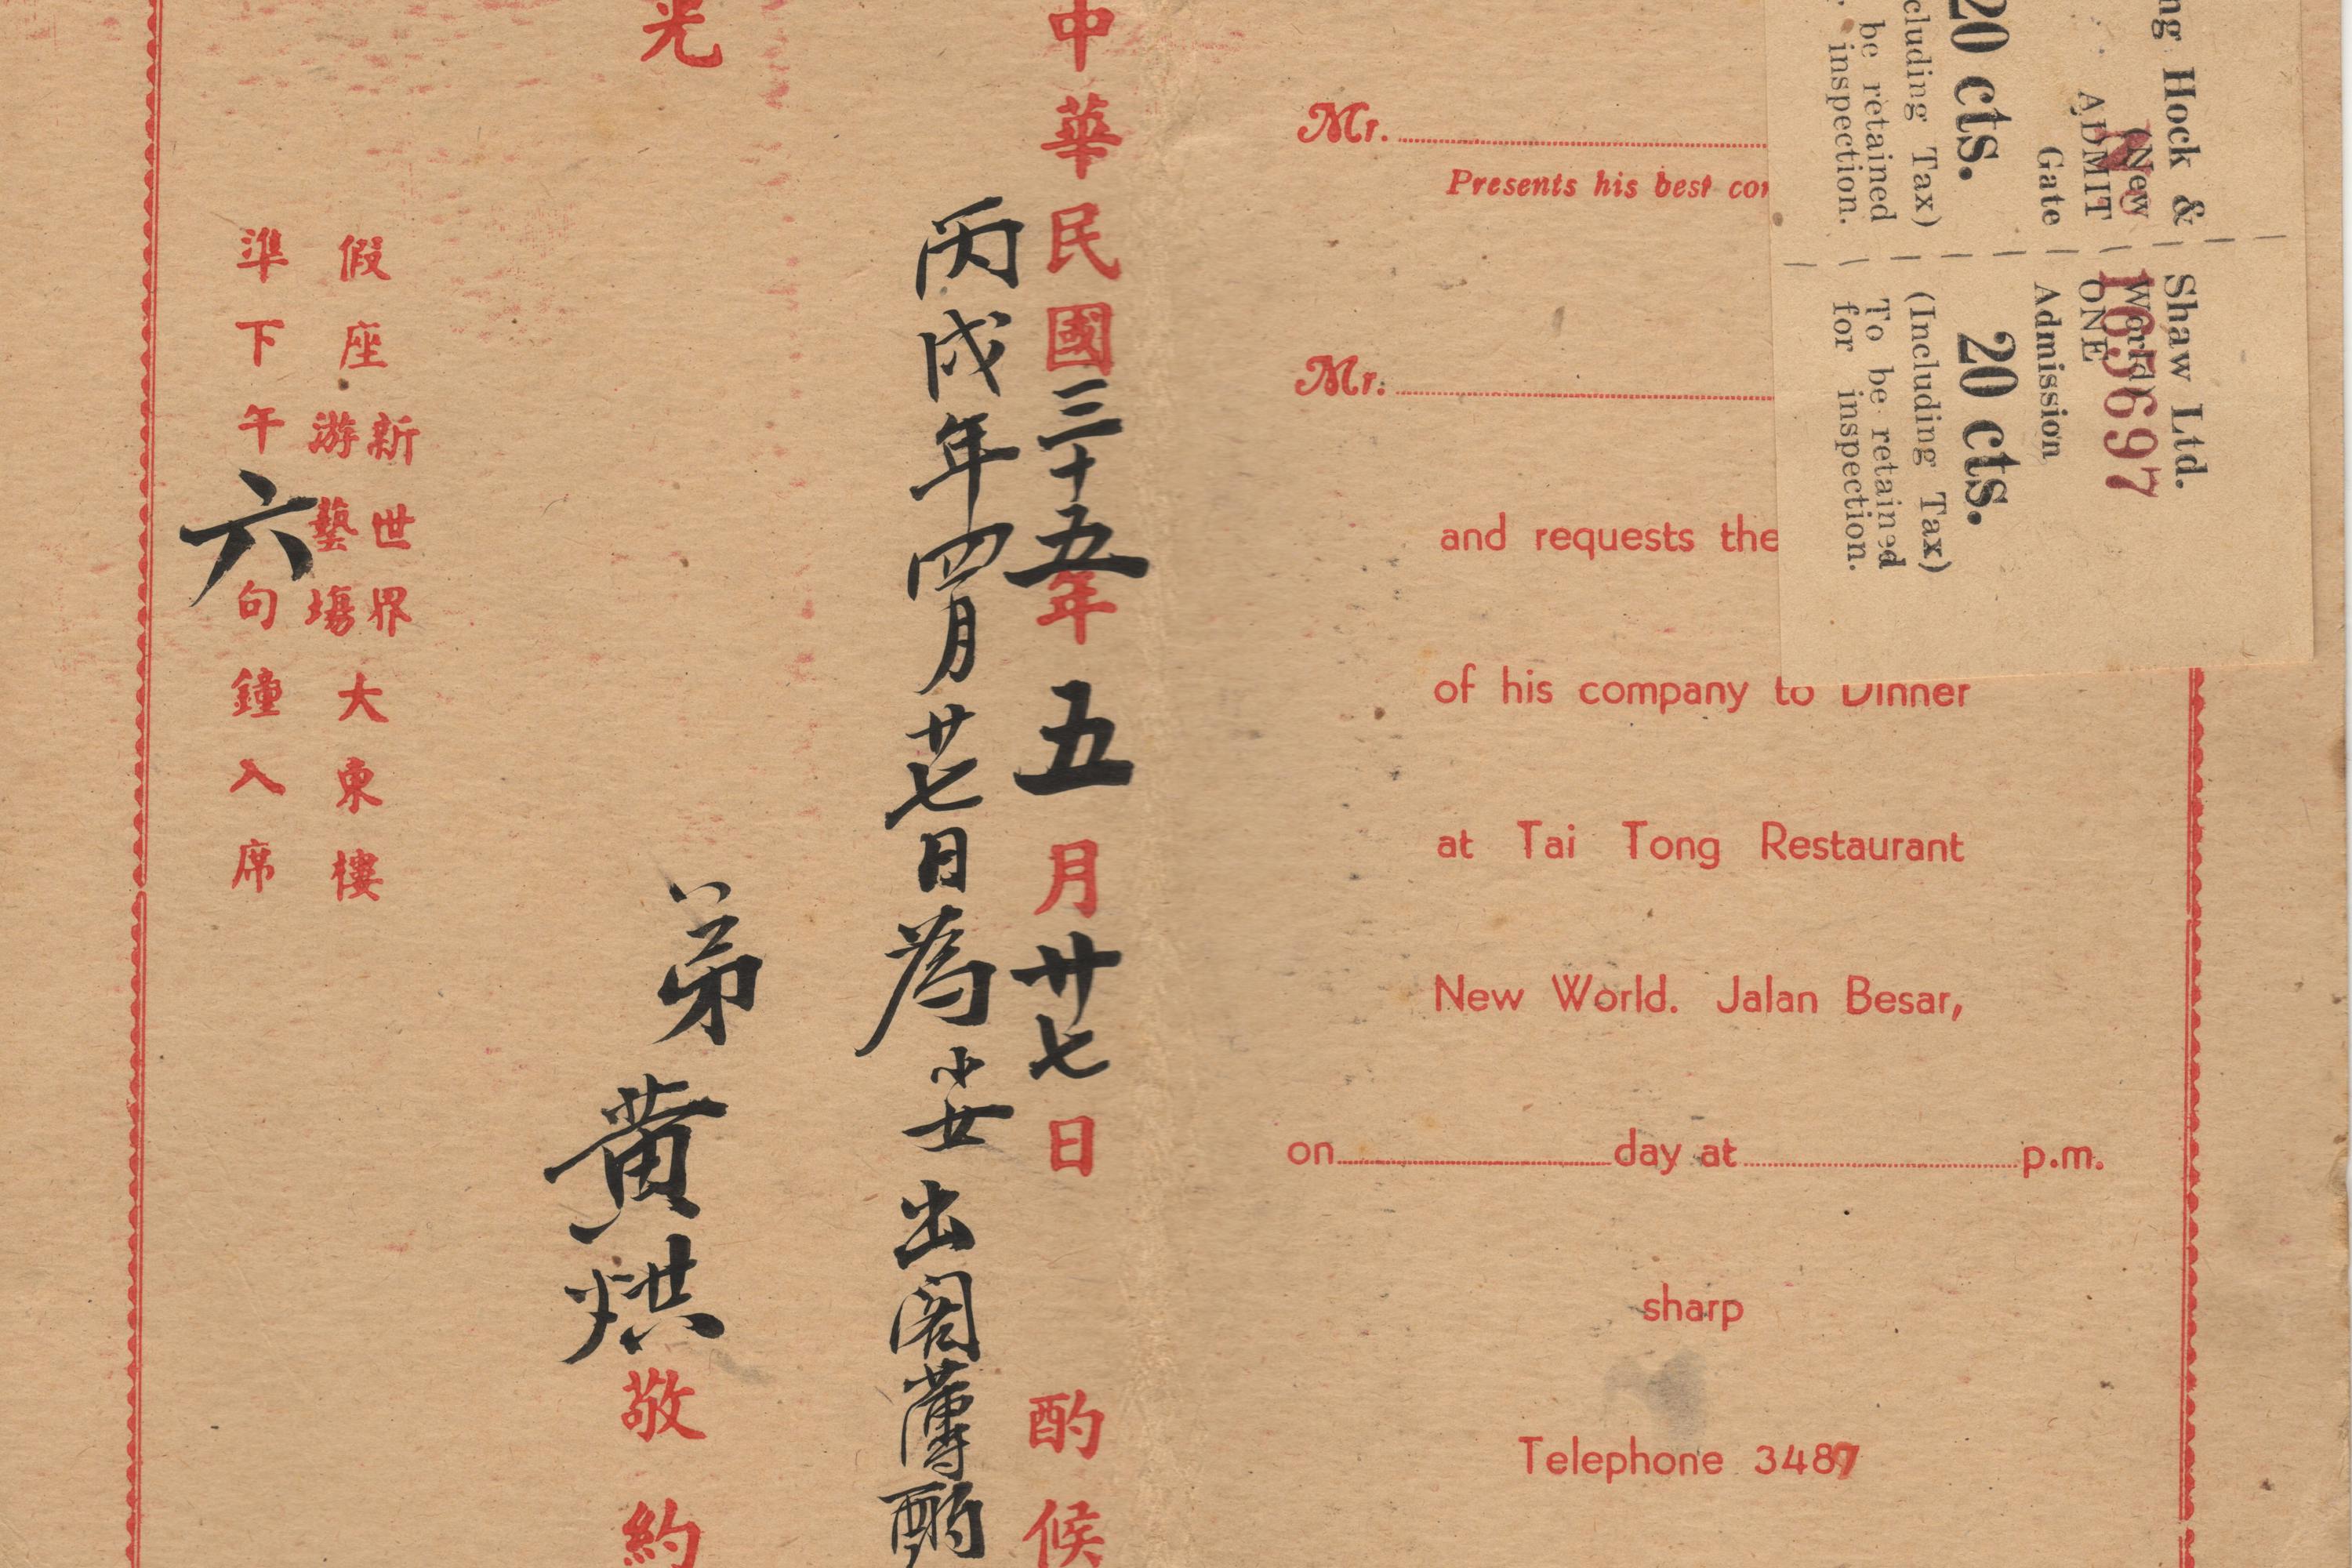 中華民國三十五年五月廿七日 酌候
丙戌年四月廿七日為小女出閣薄酌
光
弟黃烘敬約
假座新世界游藝場大東樓
準下午六句鐘入席
Mr.
Presents his best
Mr.
and requests the
of his company to Dinner
at Tai Tong Restaurant
New World. Jalan Besar,
on day at p.m.
sharp
Telephone 3487
Hock & Shaw Ltd.
(New World)
165697
ADMIT ONE
Gate Admission
20 cts. 20 cts.
Tax) (Including Tax)
be retained To be retained
inspection. for inspection.